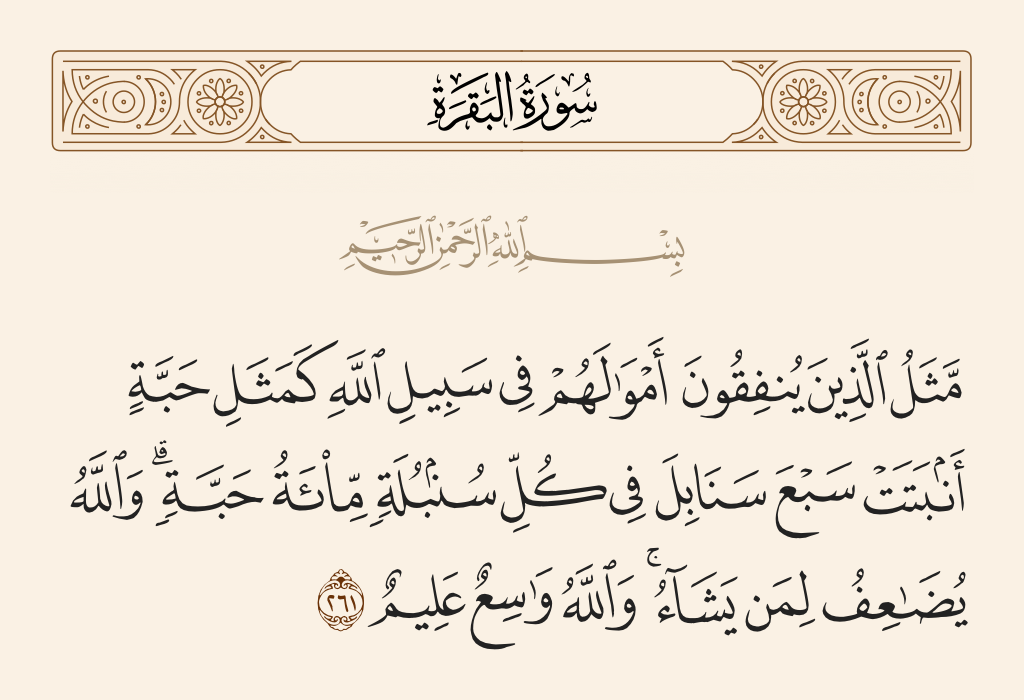 سُورَةُ البَقَرَةِ
بِسْمِ ٱللَّهِ ٱلرَّحْمَٰنِ ٱلرَّحِيمِ
مَّثَلُ ٱلَّذِينَ يُنفِقُونَ أَمْوَٰلَهُمْ فِى سَبِيلِ ٱللَّهِ كَمَثَلِ حَبَّةٍ
أَنۢبَتَتْ سَبْعَ سَنَابِلَ فِى كُلِّ سُنۢبُلَةٍ مِّا۟ئَةُ حَبَّةٍ ۗ وَٱللَّهُ
يُضَٰعِفُ لِمَن يَشَآءُ ۚ وَٱللَّهُ وَٰسِعٌ عَلِيمٌ ٢٦١